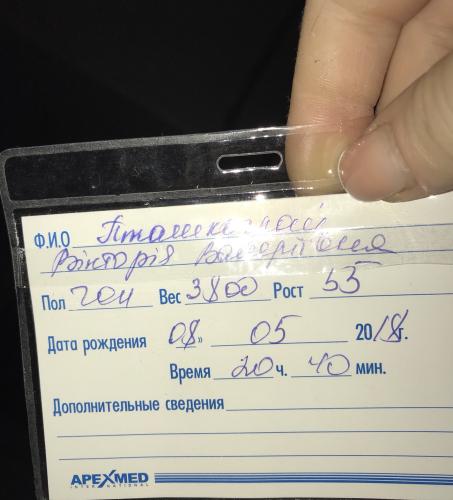 Ф.И.О
Вікторія Валеріївна
Пол чол Вес 3800 Рост 55
Дата рождения 08» 05 2018г.
Время 20 ч. 40 мин.
Дополнительные сведения
APEXMED
INTERNATIONAL